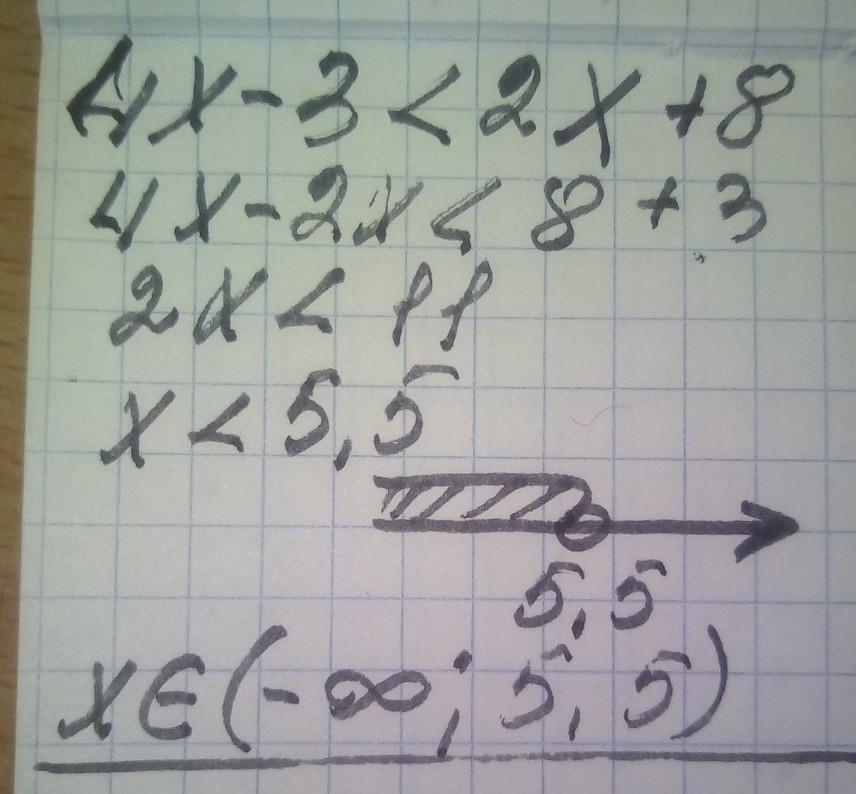 4x-3<2x+8
4x-2x<8+3
2x<11
x<5,5
5,5
x∈(-∞;5,5)